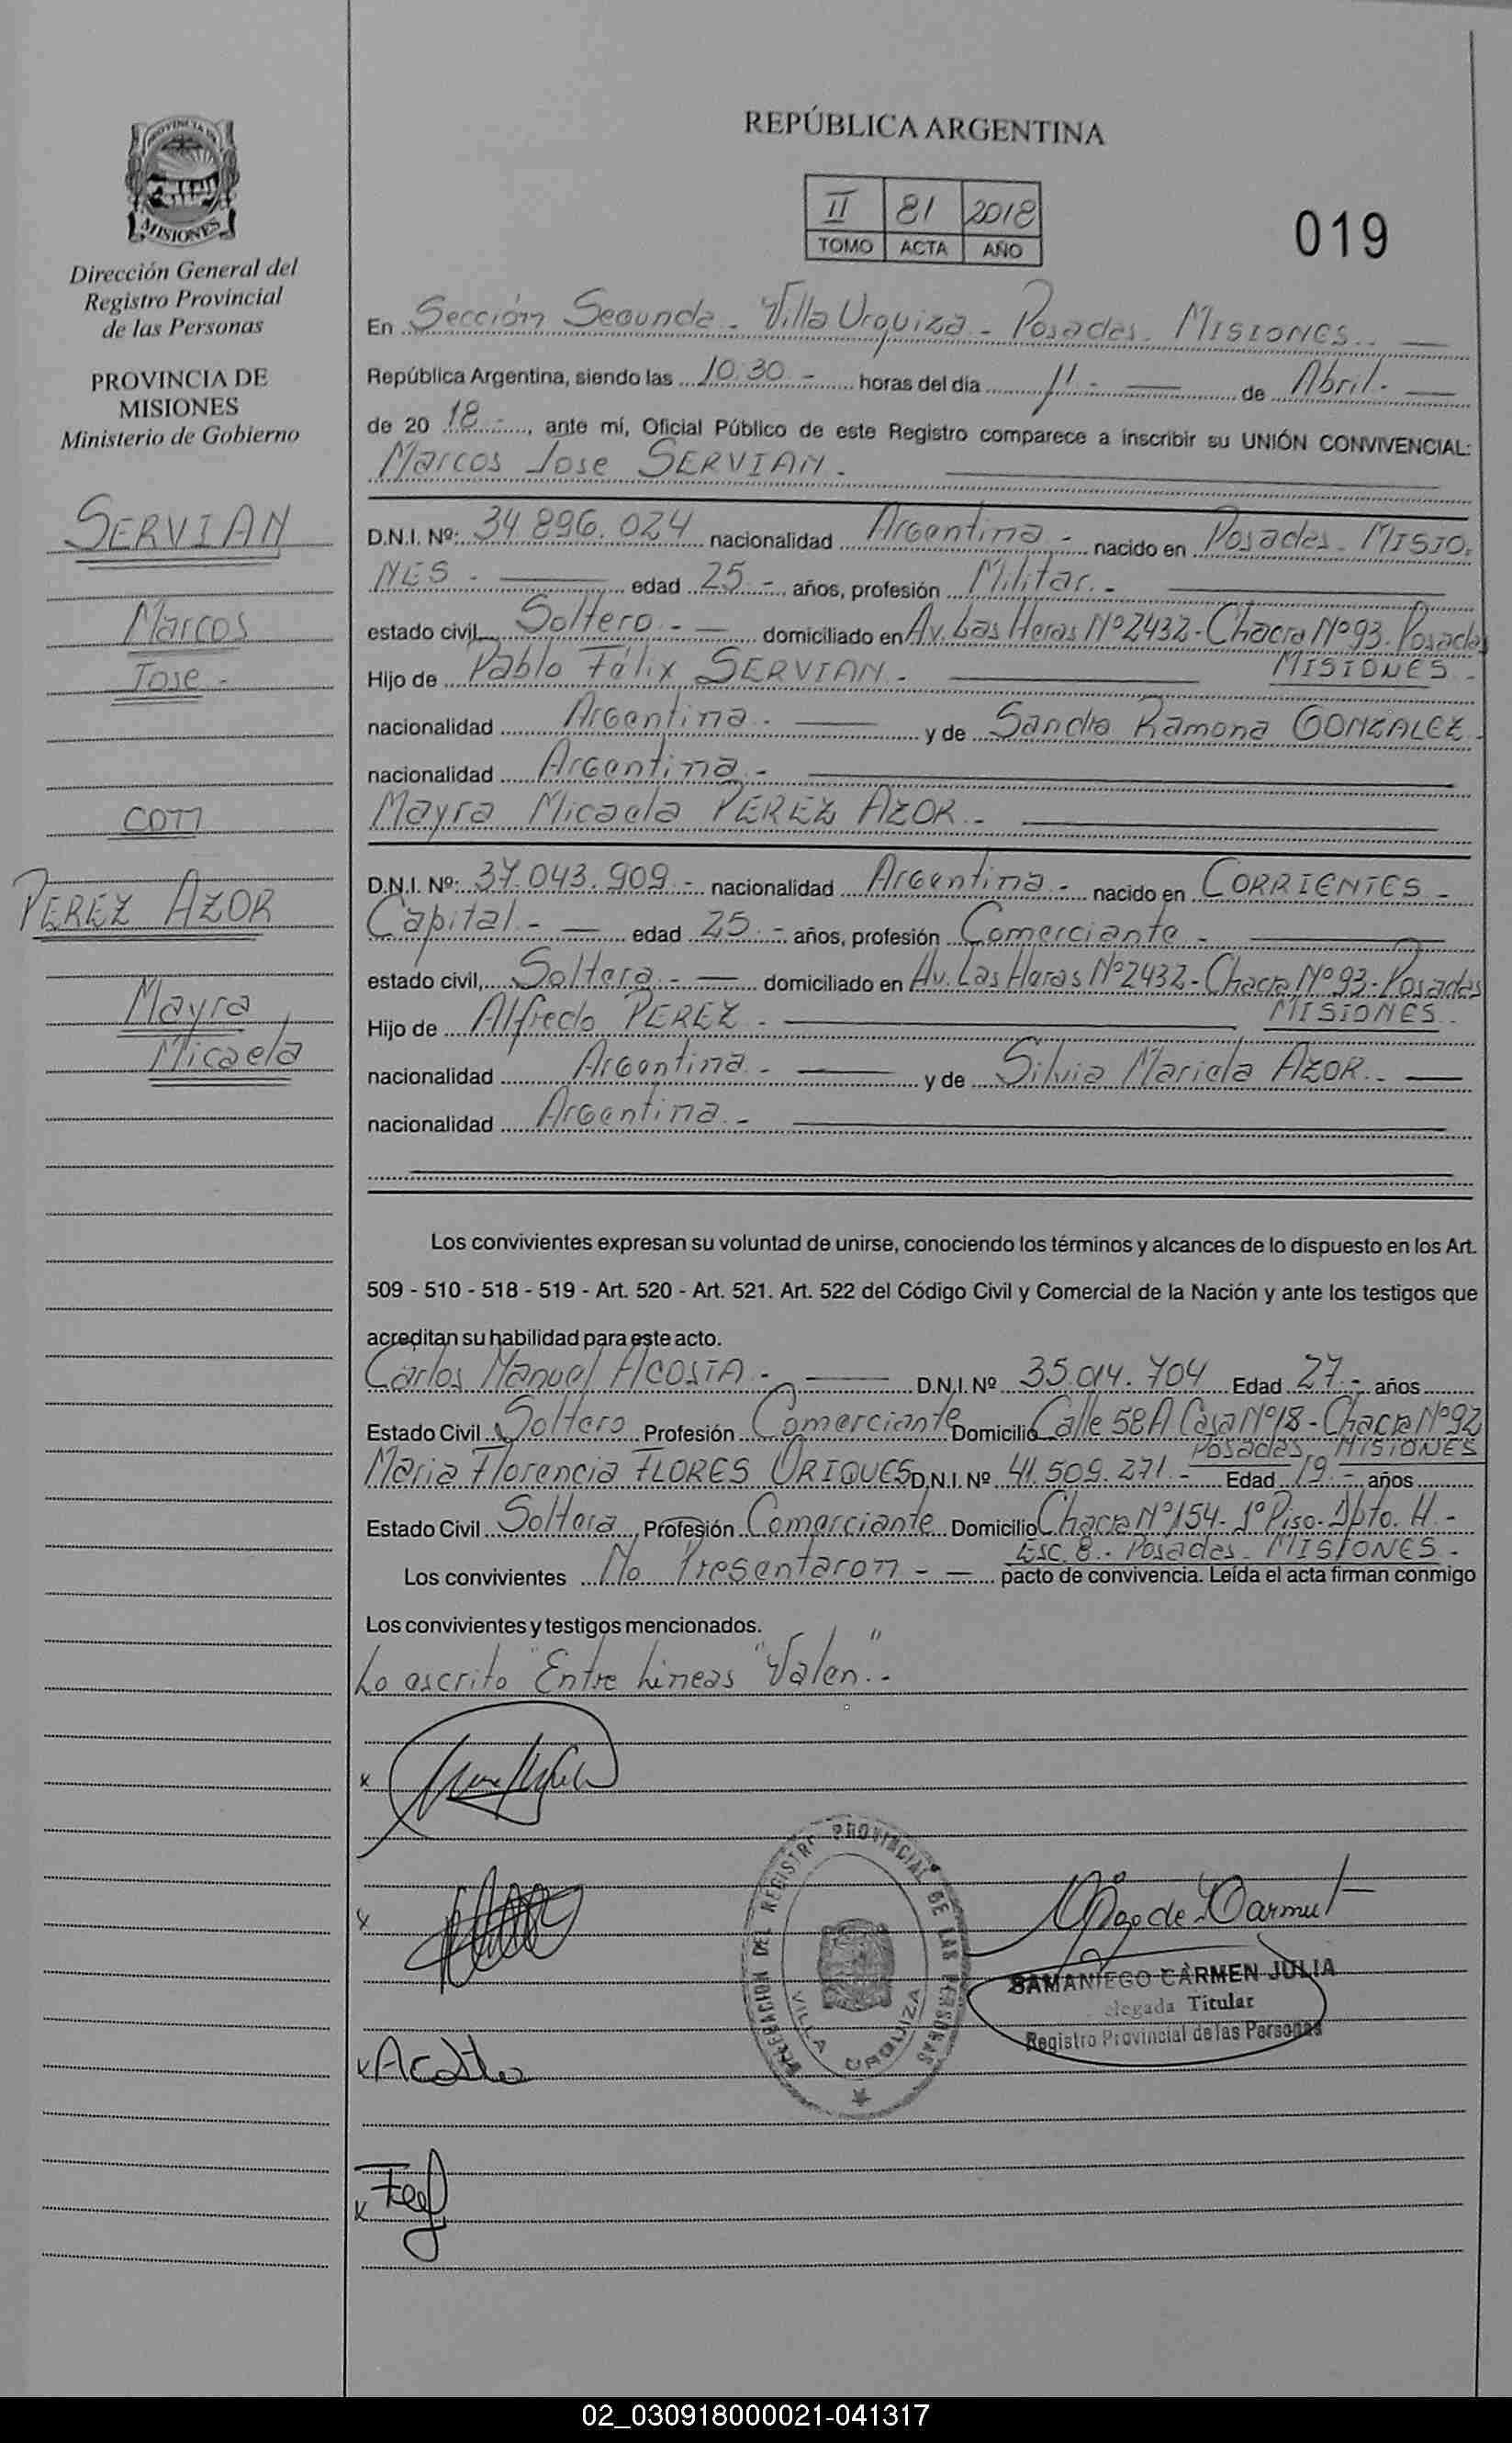 REPÚBLICA ARGENTINA
II 81 2018
TOMO ACTA AÑO
019
PROVINCIA DE
MISIONES
Dirección General del
Registro Provincial
de las Personas
PROVINCIA DE
MISIONES
Ministerio de Gobierno
SERVIAN
Marcos
Jose -
CON
PEREZ AZOR
Mayra
Micaela
En Sección Segunda - Villa Urquiza - Posadas - MISIONES. -
República Argentina, siendo las 10:30 - horas del día 11 - de Abril. -
de 20 18 -, ante mí, Oficial Público de este Registro comparece a inscribir su UNIÓN CONVIVENCIAL:
Marcos Jose SERVIAN. -
D.N.I. Nº: 34.896.024 nacionalidad Argentina - nacido en Posadas - MISIO.
NES - edad 25 - años, profesión Militar. -
estado civil, Soltero - domiciliado en Av. Las Heras Nº 2432 - Chacra Nº 93. Posadas
MISIONES -
Hijo de Pablo Félix SERVIAN. -
nacionalidad Argentina - y de Sandra Ramona GONZALEZ.
nacionalidad Argentina -
Mayra Micaela PEREZ AZOR -
D.N.I. Nº: 37.043.909 - nacionalidad Argentina - nacido en CORRIENTES -
Capital - edad 25 - años, profesión Comerciante -
estado civil, Soltera - domiciliado en Av. Las Heras Nº 2432 - Chacra Nº 93 - Posadas
MISIONES -
Hijo de Alfredo PEREZ -
nacionalidad Argentina - y de Silvia Mariela AZOR. -
nacionalidad Argentina -
Los convivientes expresan su voluntad de unirse, conociendo los términos y alcances de lo dispuesto en los Art.
509 - 510 - 518 - 519 - Art. 520 - Art. 521. Art. 522 del Código Civil y Comercial de la Nación y ante los testigos que
acreditan su habilidad para este acto.
Carlos Manuel ACOSTA - D.N.I. Nº 35.014.704 Edad 27 - años
Estado Civil Soltero Profesión Comerciante Domicilio Calle 58 A Casa Nº 18 - Chacra Nº 92
Posadas MISIONES
Maria Florencia FLORES ORIQUES D.N.I. Nº 41.509.271 - Edad 19 - años
Estado Civil Soltera Profesión Comerciante Domicilio Chacra Nº 154 - 1º Piso - Dpto. H. -
Esc. 8 - Posadas - MISIONES -
Los convivientes No Presentaron - pacto de convivencia. Leída el acta firman conmigo
Los convivientes y testigos mencionados.
Lo escrito "Entre Lineas" "Valen". -
x
x
x Acosta
x
DELEGACION DEL REGISTRO PROVINCIAL DE LAS PERSONAS
VILLA URQUIZA
SAMANIEGO CARMEN JULIA
elegada Titular
Registro Provincial de las Personas
02_030918000021-041317